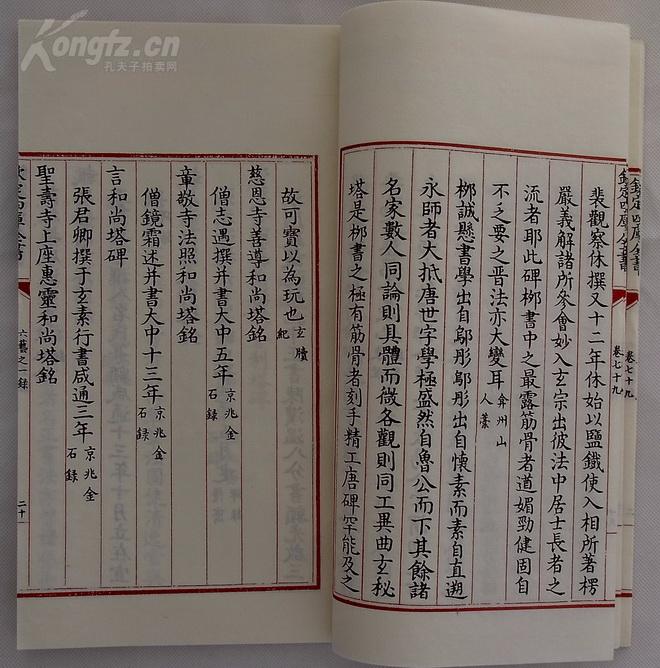 Kongfz.cn
孔夫子拍卖网
卷七十九
卷七十九
裴觀察休撰又十二年休始以鹽鐵使入相所著楞
嚴義解諸所參會妙入玄宗出彼法中居士長者之
流者耶此碑柳書中之最露筋骨者遒媚勁健固自
不乏要之晉法亦大變耳弇州山人藁
柳誠懸書學出自鄔彤鄔彤出自懷素而素自直遡
永師者大抵唐世字學極盛然自魯公而下其餘諸
名家數人同論則具體而微各觀則同工異曲玄秘
塔是柳書之極有筋骨者刻手精工唐碑罕能及之
故可寶以為玩也玄牘紀
慈恩寺善導和尚塔銘
僧志遇撰并書大中五年京兆金石錄
章敬寺法照和尚塔銘
僧鏡霜述并書大中十三年京兆金石錄
言和尚塔碑
張君卿撰于玄素行書咸通三年京兆金石錄
聖壽寺上座惠靈和尚塔銘
六藝之一錄
二十